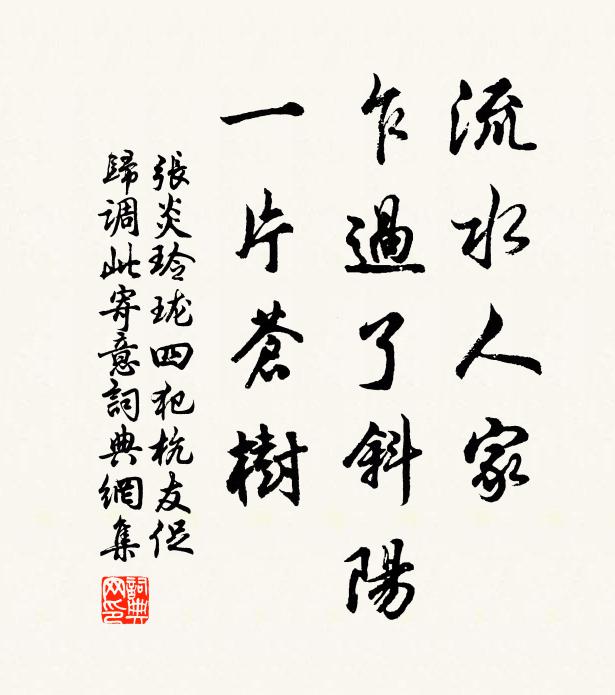 流水人家
乍過了斜陽
一片蒼樹
張炎玲瓏四犯杭友促
歸調此寄意詞典網集
詞典網印